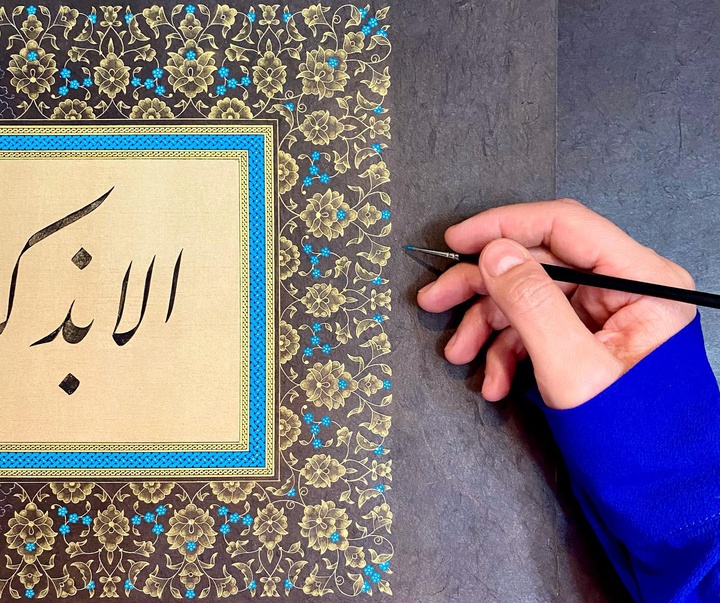 الا بذک